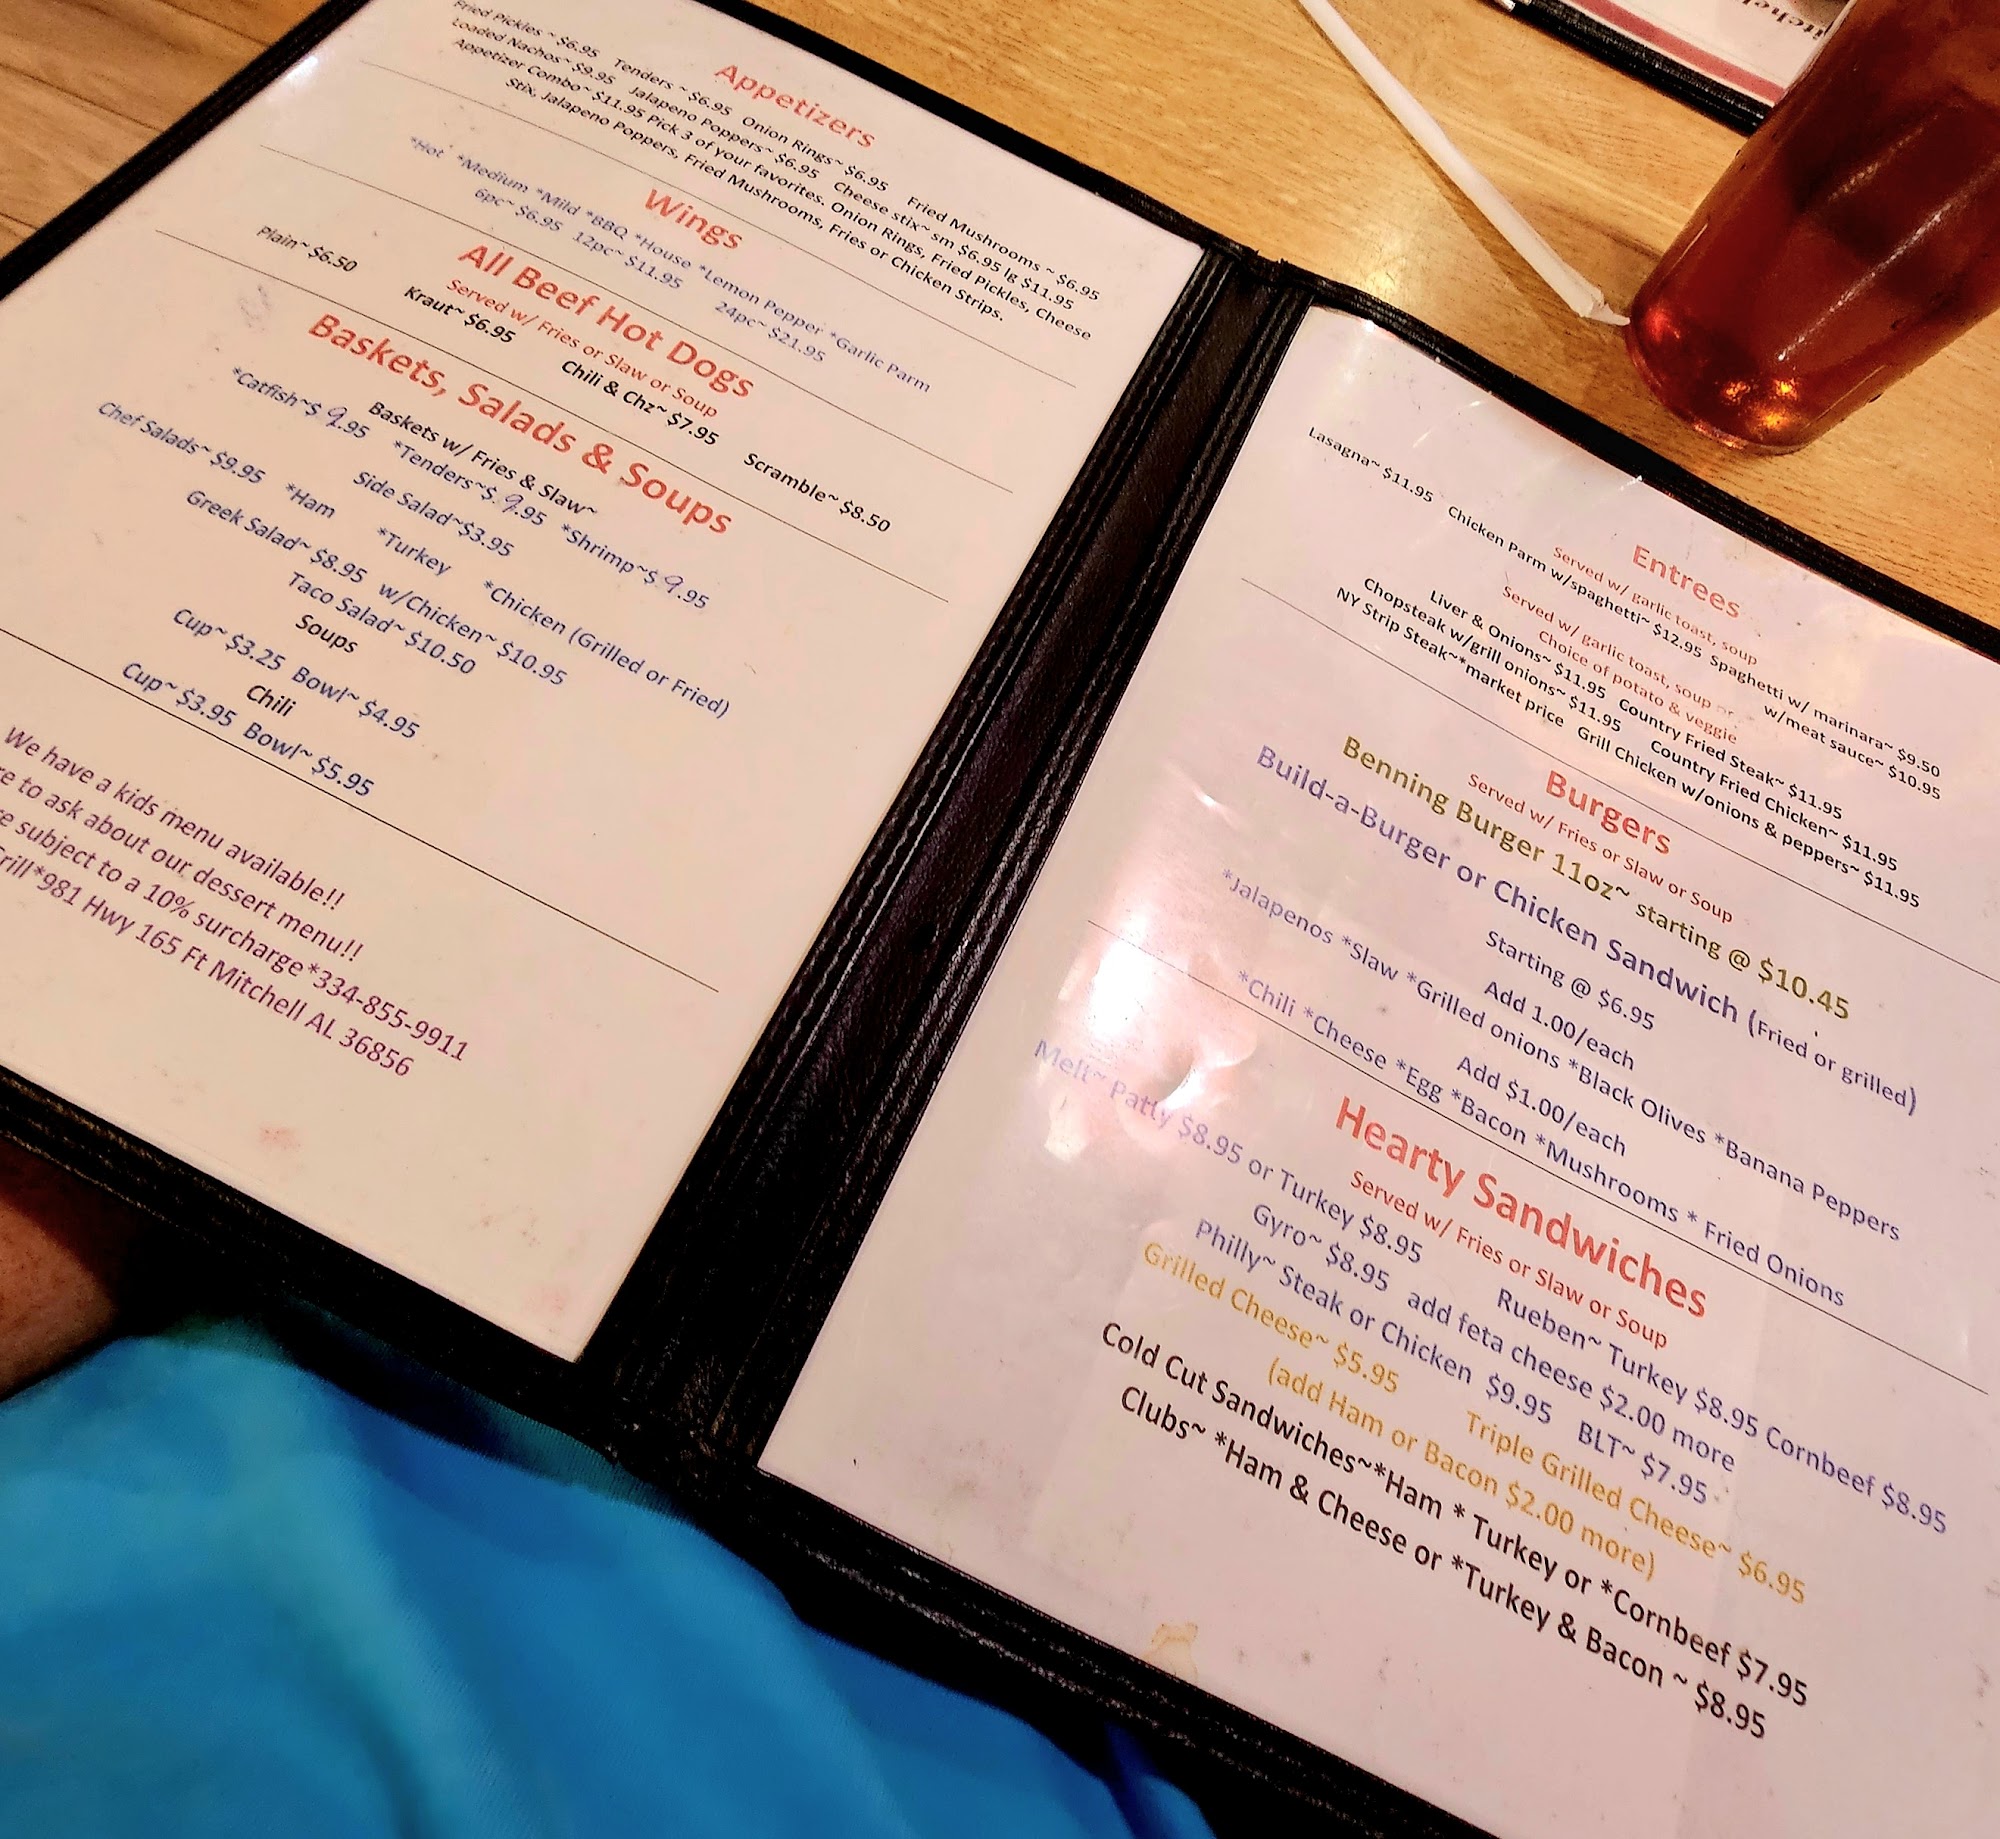 Appetizers
Fried Pickles ~ $6.95 Tenders ~ $6.95 Onion Rings~ $6.95 Fried Mushrooms ~ $6.95
Loaded Nachos~ $9.95 Jalapeno Poppers~ $6.95 Cheese stix~ sm $6.95 lg $11.95
Appetizer Combo~ $11.95 Pick 3 of your favorites. Onion Rings, Fried Pickles, Cheese
Stix, Jalapeno Poppers, Fried Mushrooms, Fries or Chicken Strips.
Wings
*Hot *Medium *Mild *BBQ *House *Lemon Pepper *Garlic Parm
6pc~ $6.95 12pc~ $11.95 24pc~ $21.95
All Beef Hot Dogs
Served w/ Fries or Slaw or Soup
Plain~ $6.50 Kraut~ $6.95 Chili & Chz~ $7.95 Scramble~ $8.50
Baskets, Salads & Soups
Baskets w/ Fries & Slaw~
*Catfish~$ 9.95 *Tenders~$ 9.95 *Shrimp~$ 9.95
Side Salad~$3.95
Chef Salads~ $9.95 *Ham *Turkey *Chicken (Grilled or Fried)
Greek Salad~ $8.95 w/Chicken~ $10.95
Taco Salad~ $10.50
Soups
Cup~ $3.25 Bowl~ $4.95
Chili
Cup~ $3.95 Bowl~ $5.95
We have a kids menu available!!
re to ask about our dessert menu!!
e subject to a 10% surcharge*334-855-9911
Grill*981 Hwy 165 Ft Mitchell AL 36856
Entrees
Served w/ garlic toast, soup
Lasagna~ $11.95 Chicken Parm w/spaghetti~ $12.95 Spaghetti w/ marinara~ $9.50
w/meat sauce~ $10.95
Served w/ garlic toast, soup or
Choice of potato & veggie
Liver & Onions~ $11.95 Country Fried Steak~ $11.95
Chopsteak w/grill onions~ $11.95 Country Fried Chicken~ $11.95
NY Strip Steak~*market price Grill Chicken w/onions & peppers~ $11.95
Burgers
Served w/ Fries or Slaw or Soup
Benning Burger 11oz~ starting @ $10.45
Build-a-Burger or Chicken Sandwich (Fried or grilled)
Starting @ $6.95
Add 1.00/each
*Jalapenos *Slaw *Grilled onions *Black Olives *Banana Peppers
Add $1.00/each
*Chili *Cheese *Egg *Bacon *Mushrooms * Fried Onions
Hearty Sandwiches
Served w/ Fries or Slaw or Soup
Melt~ Patty $8.95 or Turkey $8.95 Rueben~ Turkey $8.95 Cornbeef $8.95
Gyro~ $8.95 add feta cheese $2.00 more
Philly~ Steak or Chicken $9.95 BLT~ $7.95
Grilled Cheese~ $5.95 Triple Grilled Cheese~ $6.95
(add Ham or Bacon $2.00 more)
Cold Cut Sandwiches~*Ham * Turkey or *Cornbeef $7.95
Clubs~ *Ham & Cheese or *Turkey & Bacon ~ $8.95